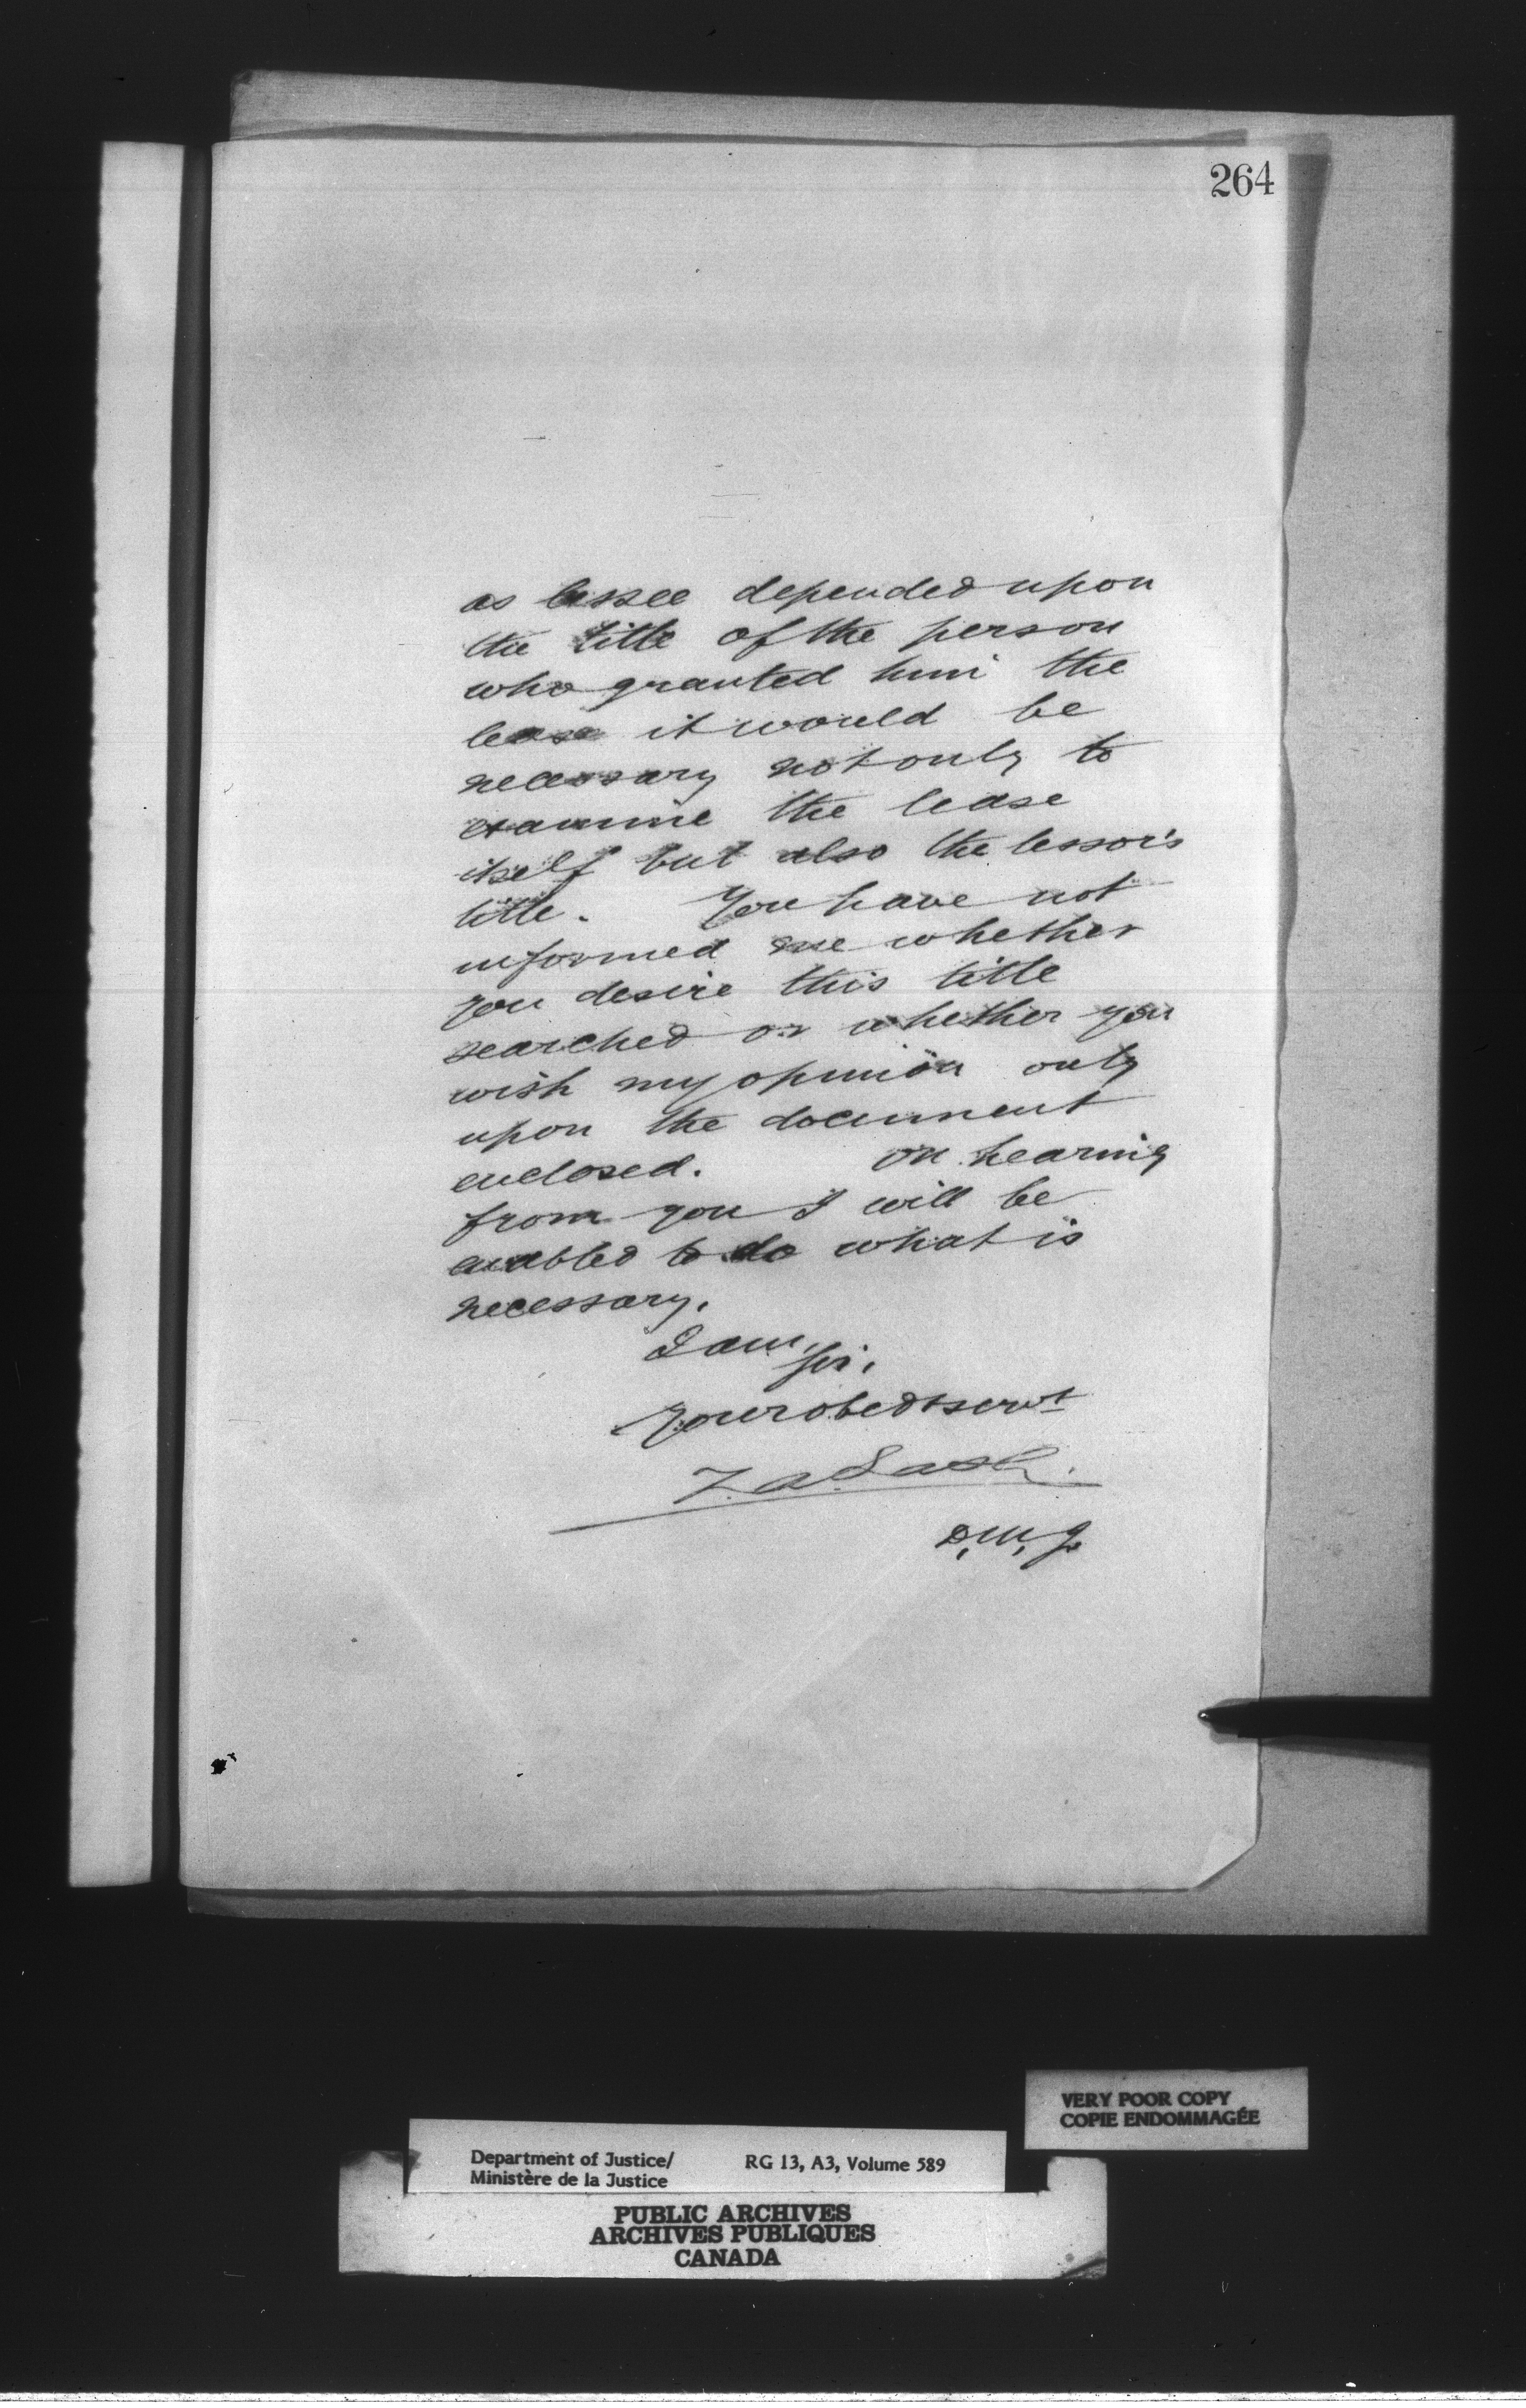 264
as lessee depended upon
the title of the person
who granted him the
lease it would be
necessary not only to
examine the lease
itself but also the lessor's
title. You have not
informed me whether
you desire this title
searched or whether you
wish my opinion only
upon the document
enclosed. On hearing
from you I will be
enabled to do what is
necessary.
I am,
Sir,
Your obedt servt
Z. A. Lash.
D. M. J.
VERY POOR COPY
COPIE ENDOMMAGÉE
Department of Justice/ RG 13, A3, Volume 589
Ministère de la Justice
PUBLIC ARCHIVES
ARCHIVES PUBLIQUES
CANADA